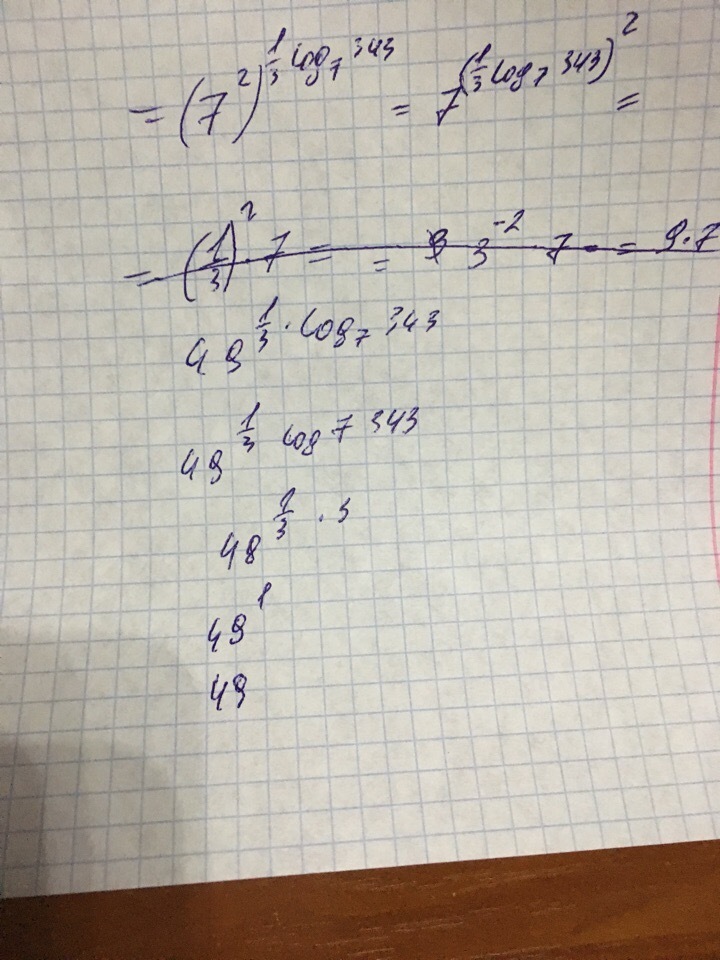 = (7²)^(1/3 log₇ 343) = 7^(1/3 log₇ 343)² =
= (1/3)² · 7 = = 3⁻² 7 = 9·7
49^(1/3 · log₇ 343)
49^(1/3 log 7 343)
49^(1/3 · 3)
49¹
49